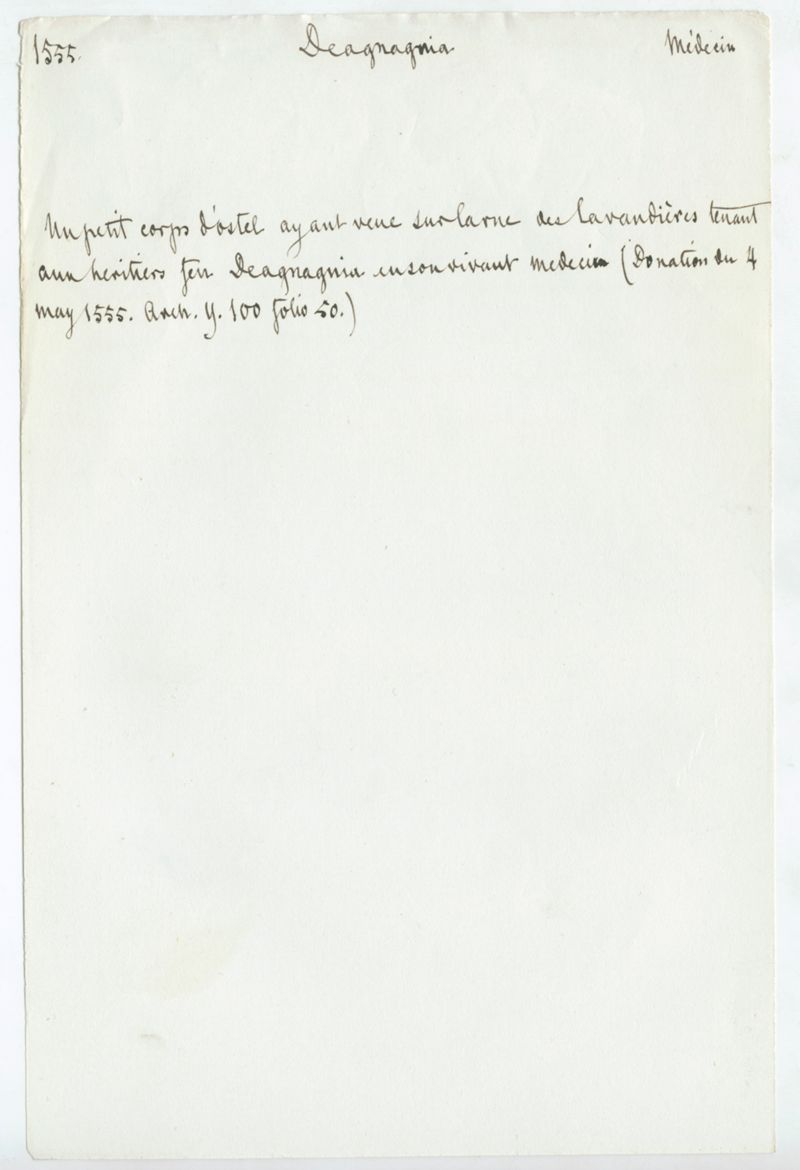 1555. Deagnagnia Médecin
Un petit corps d'ostel ayant veue sur la rue des lavandières tenant
aux heritiers feu Deagnagnia en son vivant medecin (Donation du 4
may 1555. Arch. Y. 100 folio 50.)